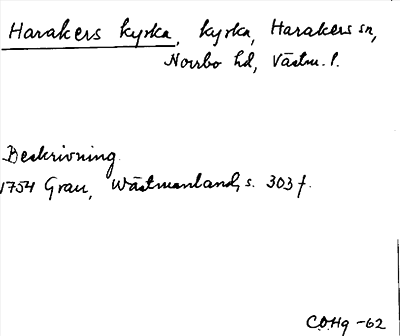 Harakers kyrka, kyrka, Harakers sn,
Norrbo hd, Västm. l.
Beskrivning
1754 Grau, Wästmanland, s. 303 f.
C.O.Hg -62